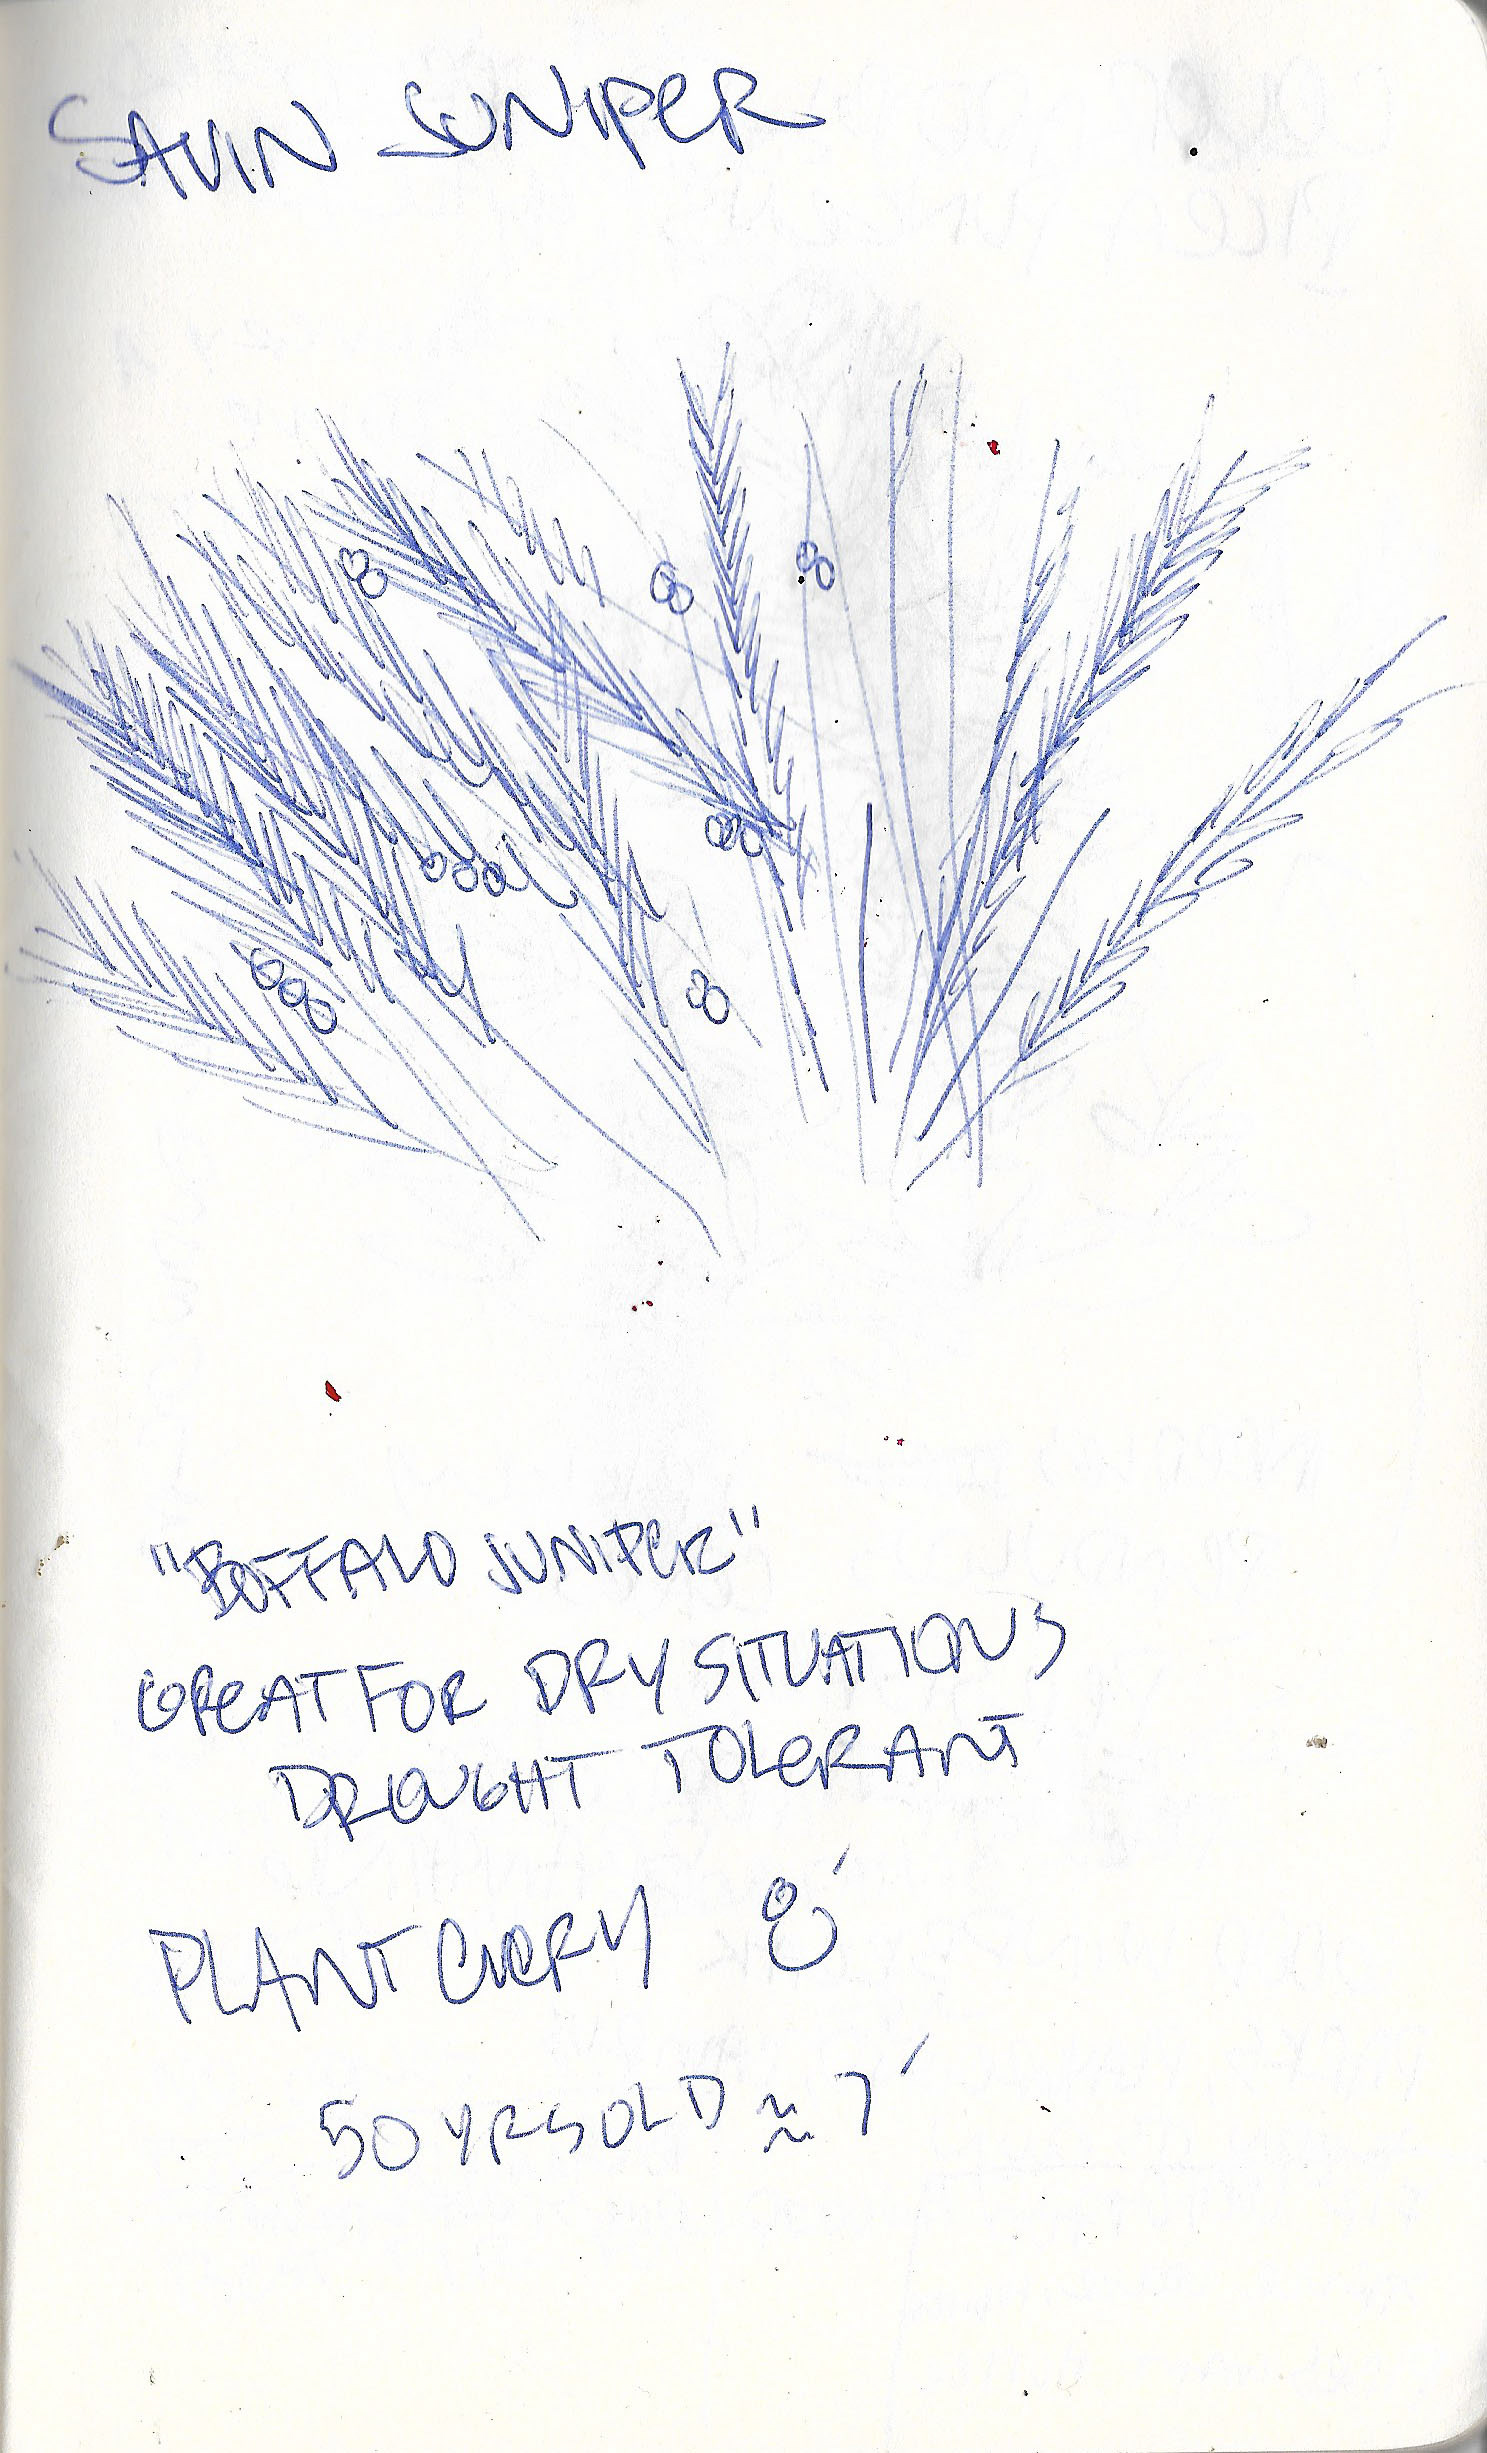 SAVIN JUNIPER
"BUFFALO JUNIPER"
GREAT FOR DRY SITUATIONS
DROUGHT TOLERANT
PLANT EVERY 8'
50 YRS OLD ≈ 7'